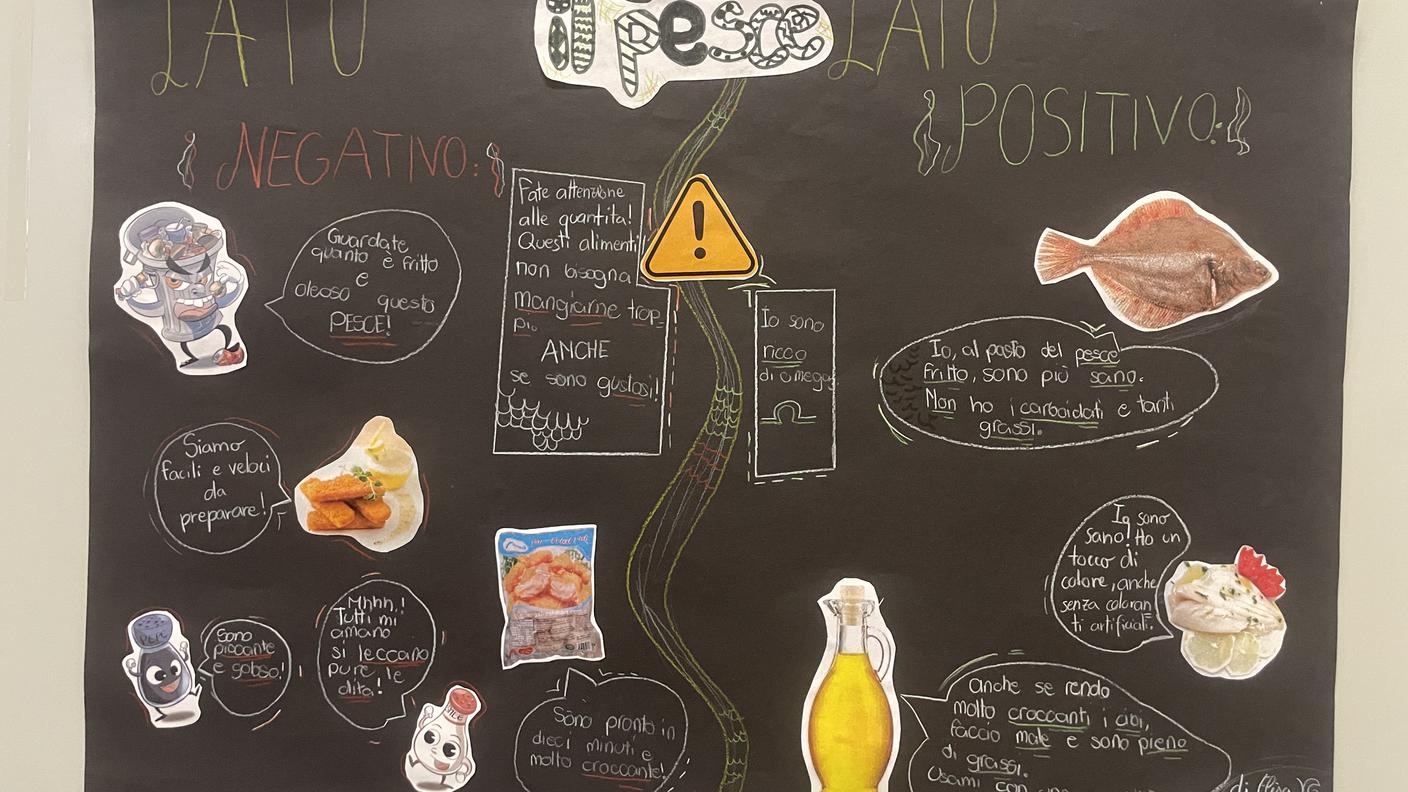 il pesce
LATO
NEGATIVO:
LATO
POSITIVO:
Guardate
quanto è fritto
e
oleoso questo
PESCE!
Fate attenzione
alle quantità!
Questi alimenti
non bisogna
mangiarne trop-
po.
ANCHE
se sono gustosi!
Io sono
ricco
di omega
Io, al posto del pesce
fritto, sono più sano.
Non ho i carboidati e tanti
grassi.
Siamo
facili e veloci
da
preparare!
Io sono
sano! Ho un
tocco di
colore, anche
senza coloran
ti artificiali.
PEPE
Sono
piccante
e goloso!
Mhhh,!
Tutti mi
amano
si leccano
pure, le
dita!
Sono pronto in
dieci minuti e
molto croccante!
anche se rendo
molto croccanti i cibi,
faccio male e sono pieno
di grassi.
Usami con
di Elisa